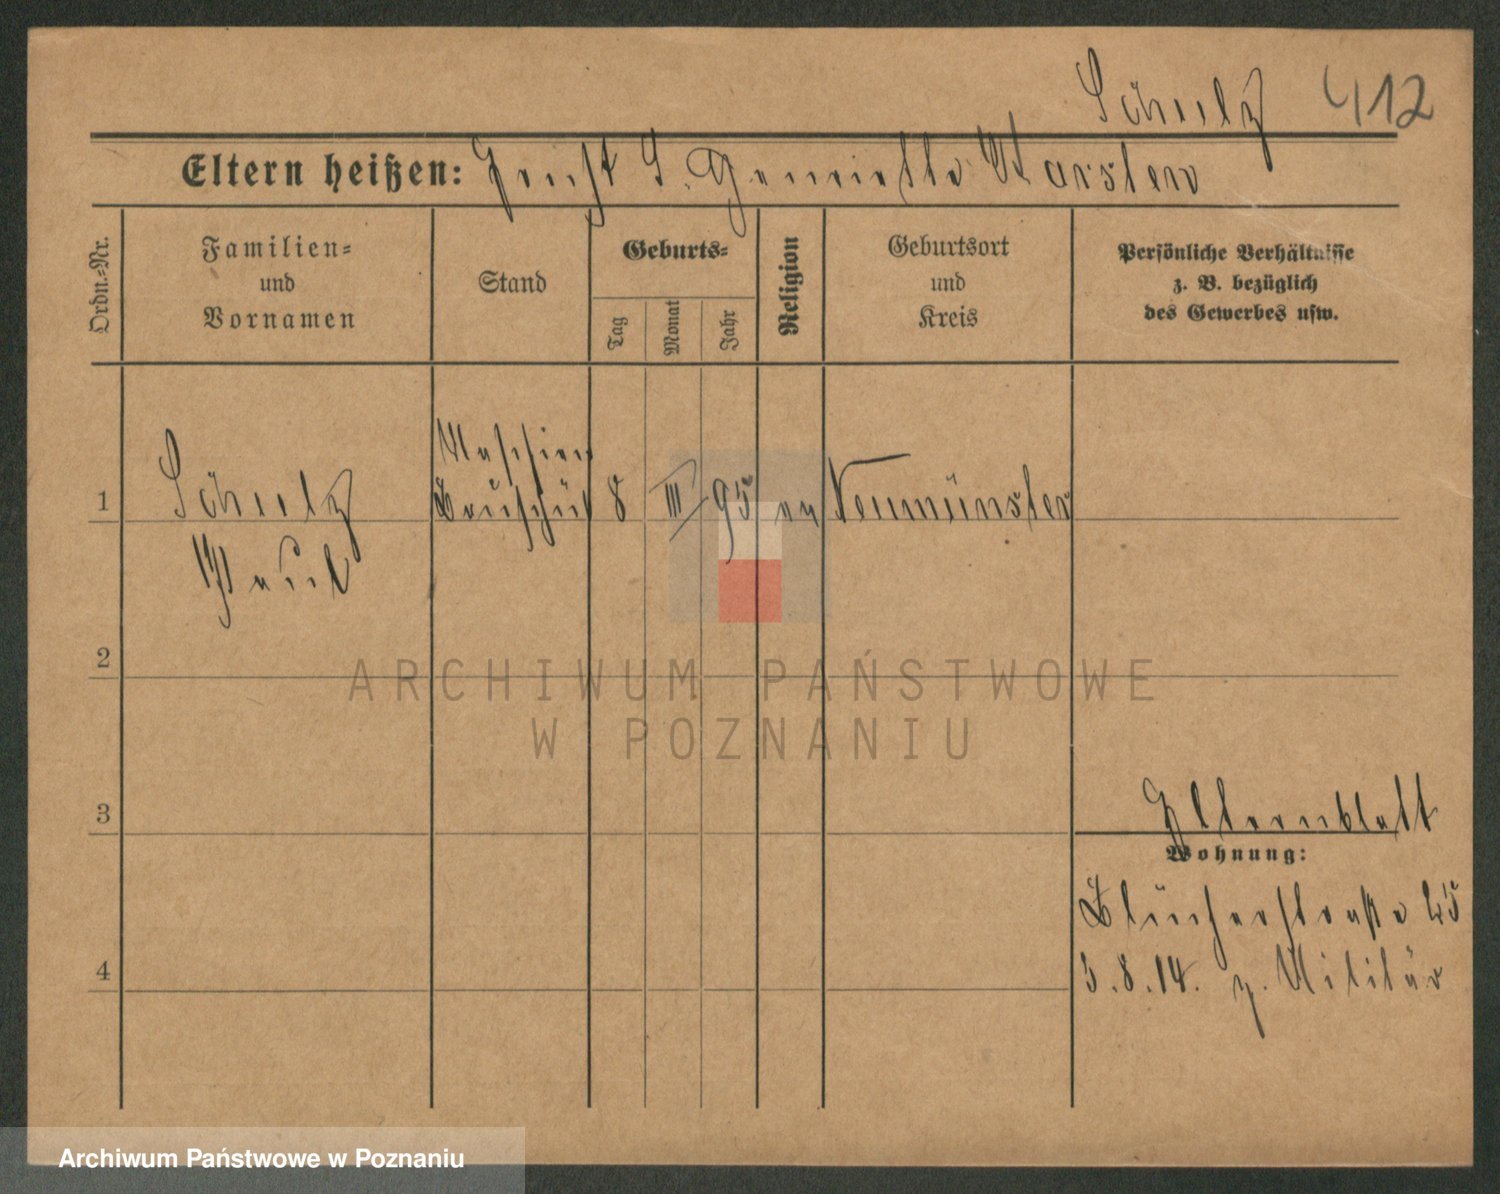 Schulz 412
Eltern heißen: Ernst S. Henriette Karsten
Ordn.-Nr.
Familien-
und
Vornamen
Stand
Geburts-
Tag
Monat
Jahr
Religion
Geburtsort
und
Kreis
Persönliche Verhältnisse
z. B. bezüglich
des Gewerbes usw.
1
Schulz
Paul
8
III
95
ev
Neumünster
2
ARCHIWUM PAŃSTWOWE
W POZNANIU
3
Elternblatt
Wohnung:
Blücherstraße 25
4
3.8.14. z. Militär
Archiwum Państwowe w Poznaniu